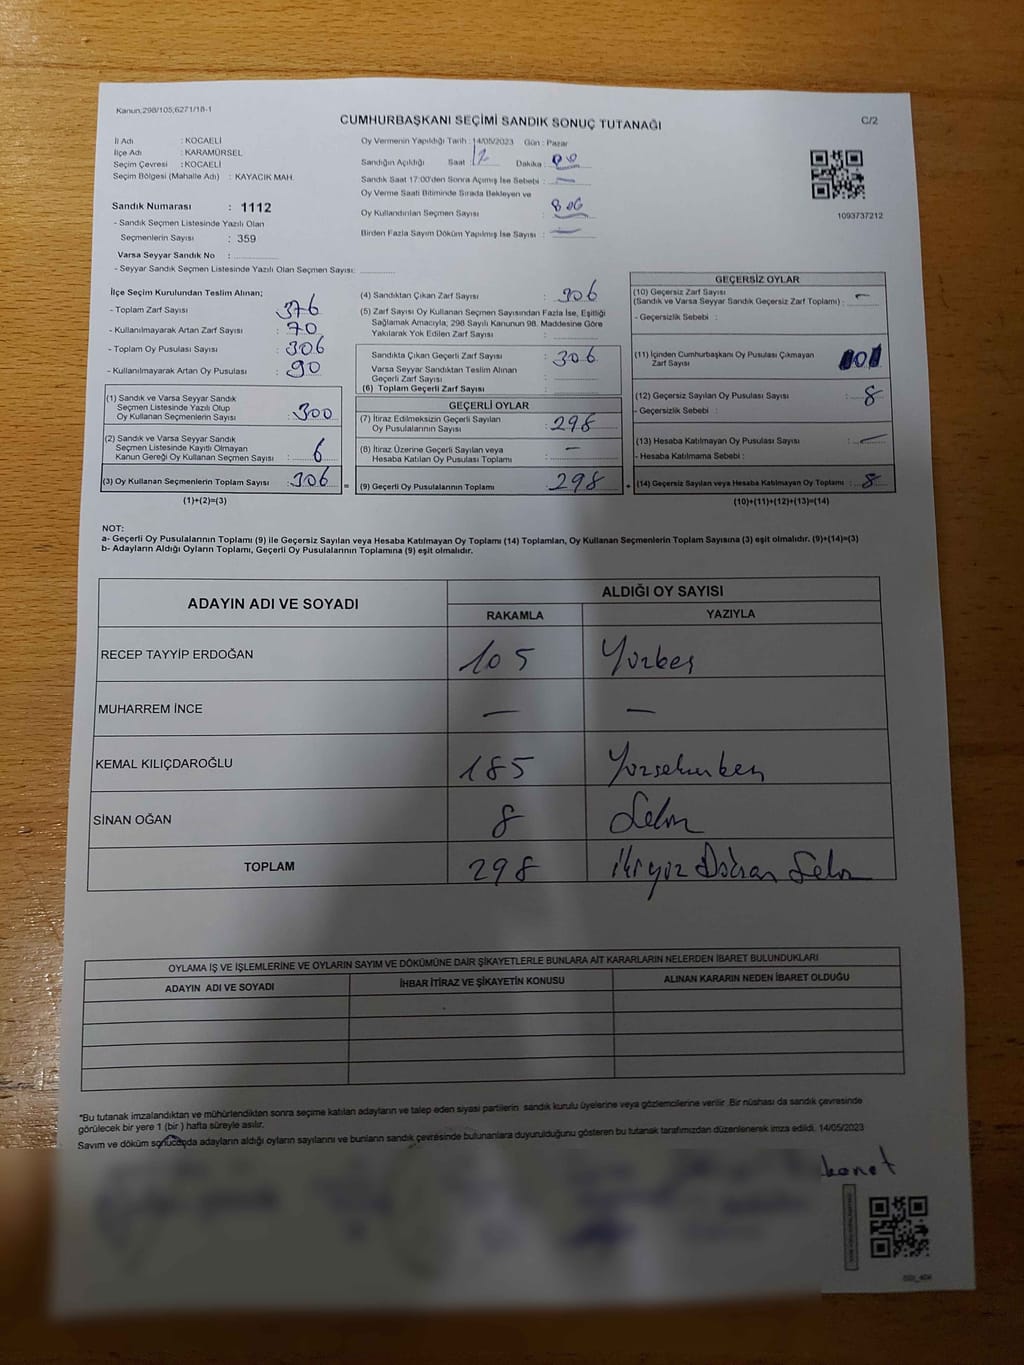 Kanun;298/105,6271/18-1
CUMHURBAŞKANI SEÇİMİ SANDIK SONUÇ TUTANAĞI
C/2
İl Adı : KOCAELİ
İlçe Adı : KARAMÜRSEL
Seçim Çevresi : KOCAELİ
Seçim Bölgesi (Mahalle Adı) : KAYACIK MAH.
Sandık Numarası : 1112
- Sandık Seçmen Listesinde Yazılı Olan
Seçmenlerin Sayısı : 359
Varsa Seyyar Sandık No :
- Seyyar Sandık Seçmen Listesinde Yazılı Olan Seçmen Sayısı:
Oy Vermenin Yapıldığı Tarih : 14/05/2023 Gün : Pazar
Sandığın Açıldığı Saat Dakika : 00
Sandık Saat 17:00'den Sonra Açımış İse Sebebi : —
Oy Verme Saati Bitiminde Sırada Bekleyen ve
Oy Kullandırılan Seçmen Sayısı :
Birden Fazla Sayım Döküm Yapılmış İse Sayısı : —
1093737212
İlçe Seçim Kurulundan Teslim Alınan;
- Toplam Zarf Sayısı : 376
- Kullanılmayarak Artan Zarf Sayısı : 70
- Toplam Oy Pusulası Sayısı : 306
- Kullanılmayarak Artan Oy Pusulası : 90
(1) Sandık ve Varsa Seyyar Sandık
Seçmen Listesinde Yazılı Olup
Oy Kullanan Seçmenlerin Sayısı : 300
(2) Sandık ve Varsa Seyyar Sandık
Seçmen Listesinde Kayıtlı Olmayan
Kanun Gereği Oy Kullanan Seçmen Sayısı : 6
(3) Oy Kullanan Seçmenlerin Toplam Sayısı : 306 =
(1)+(2)=(3)
(4) Sandıktan Çıkan Zarf Sayısı : 306
(5) Zarf Sayısı Oy Kullanan Seçmen Sayısından Fazla İse, Eşitliği
Sağlamak Amacıyla; 298 Sayılı Kanunun 98. Maddesine Göre
Yakılarak Yok Edilen Zarf Sayısı :
Sandıkta Çıkan Geçerli Zarf Sayısı : 306
Varsa Seyyar Sandıktan Teslim Alınan
Geçerli Zarf Sayısı :
(6) Toplam Geçerli Zarf Sayısı :
GEÇERLİ OYLAR
(7) İtiraz Edilmeksizin Geçerli Sayılan
Oy Pusulalarının Sayısı : 298
(8) İtiraz Üzerine Geçerli Sayılan veya
Hesaba Katılan Oy Pusulası Toplamı : —
(9) Geçerli Oy Pusulalarının Toplamı : 298 +
GEÇERSİZ OYLAR
(10) Geçersiz Zarf Sayısı
(Sandık ve Varsa Seyyar Sandık Geçersiz Zarf Toplamı) : —
- Geçersizlik Sebebi :
(11) İçinden Cumhurbaşkanı Oy Pusulası Çıkmayan
Zarf Sayısı
(12) Geçersiz Sayılan Oy Pusulası Sayısı : 8
- Geçersizlik Sebebi :
(13) Hesaba Katılmayan Oy Pusulası Sayısı : —
- Hesaba Katılmama Sebebi :
(14) Geçersiz Sayılan veya Hesaba Katılmayan Oy Toplamı : 8
(10)+(11)+(12)+(13)=(14)
NOT:
a- Geçerli Oy Pusulalarının Toplamı (9) ile Geçersiz Sayılan veya Hesaba Katılmayan Oy Toplamı (14) Toplamları, Oy Kullanan Seçmenlerin Toplam Sayısına (3) eşit olmalıdır. (9)+(14)=(3)
b- Adayların Aldığı Oyların Toplamı, Geçerli Oy Pusulalarının Toplamına (9) eşit olmalıdır.
ADAYIN ADI VE SOYADI
ALDIĞI OY SAYISI
RAKAMLA YAZIYLA
RECEP TAYYİP ERDOĞAN 105 Yüzbeş
MUHARREM İNCE — —
KEMAL KILIÇDAROĞLU 185 Yüzseksenbeş
SİNAN OĞAN 8 Sekiz
TOPLAM 298 İkiyüz Doksan Sekiz
OYLAMA İŞ VE İŞLEMLERİNE VE OYLARIN SAYIM VE DÖKÜMÜNE DAİR ŞİKAYETLERLE BUNLARA AİT KARARLARIN NELERDEN İBARET BULUNDUKLARI
ADAYIN ADI VE SOYADI İHBAR İTİRAZ VE ŞİKAYETİN KONUSU ALINAN KARARIN NEDEN İBARET OLDUĞU
*Bu tutanak imzalandıktan ve mühürlendikten sonra seçime katılan adayların ve talep eden siyasi partilerin sandık kurulu üyelerine veya gözlemcilerine verilir. Bir nüshası da sandık çevresinde
görülecek bir yere 1 (bir ) hafta süreyle asılır.
Sayım ve döküm sonucunda adayların aldığı oyların sayılarını ve bunların sandık çevresinde bulunanlara duyurulduğunu gösteren bu tutanak tarafımızdan düzenlenerek imza edildi. 14/05/2023